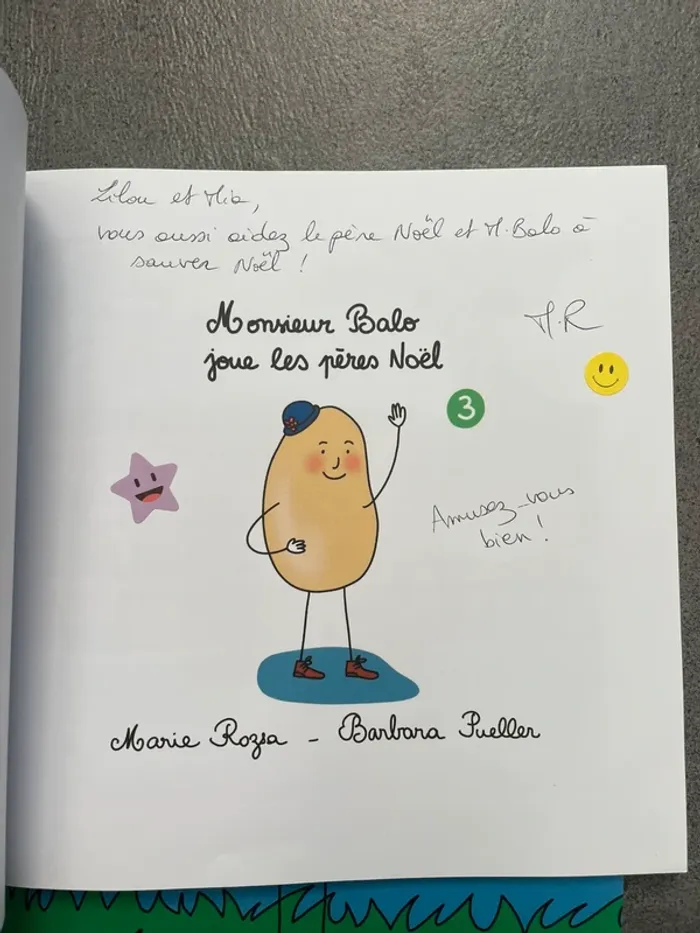 Lilou et Mia,
vous aussi aidez le père Noël et M. Balo à
sauver Noël !
Monsieur Balo
joue les pères Noël
M.R
3
Amusez-vous
bien !
Marie Rozsa - Barbara Pueller